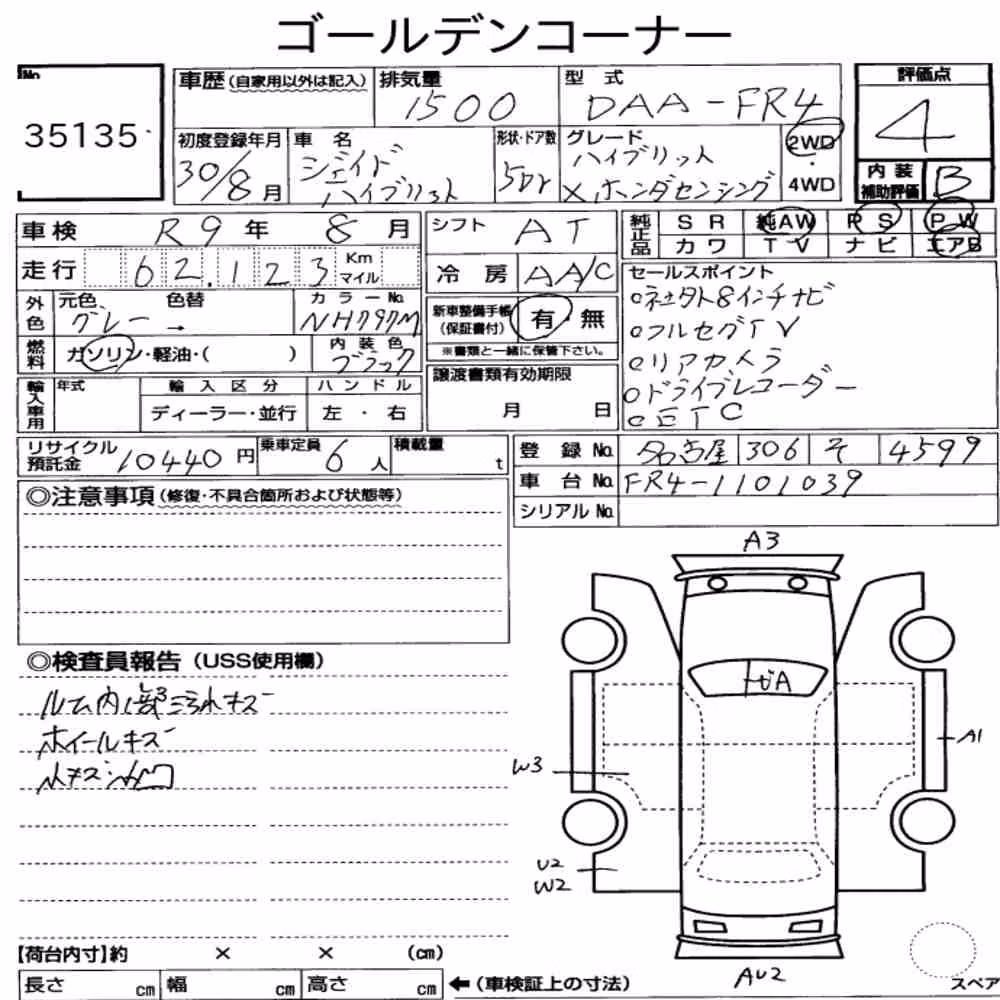 ゴールデンコーナー
No. 35135
車歴(自家用以外は記入) 排気量 1500 型式 DAA-FR4 評価点 4
初度登録年月 30/8月 車名 シェイド ハイブリット 形状・ドア数 5Dr グレード ハイブリット X ホンダセンシング 2WD・4WD 内装補助評価 B
車検 R9年 8月 シフト AT 純正品 SR 純AW PS PW
カワ TV ナビ エアB
走行 62,123 Km マイル 冷房 AA/C
外色 元色 グレー → 色替 カラーNo. NH797M 新車整備手帳(保証書付) 有 無
※書類と一緒に保管下さい。
燃料 ガソリン・軽油・( ) 内装色 ブラック
セールスポイント
○ネェタト8インチナビ
○フルセグTV
○リアカメラ
○ドライブレコーダー
○ETC
輸入車用 年式 輸入区分 ディーラー・並行 ハンドル 左・右 譲渡書類有効期限 月 日
リサイクル預託金 10440円 乗車定員 6人 積載量 t 登録No. 名古屋 306 そ 4599
車台No. FR4-1101039
シリアルNo.
◎注意事項(修復・不具合箇所および状態等)
◎検査員報告(USS使用欄)
ルーム内1部汚れキズ
ホイールキズ
小キズ小凹
A3
A1
W3
U2
W2
AU2
スペア
【荷台内寸】約 × × (cm)
長さ cm 幅 cm 高さ cm ←(車検証上の寸法)